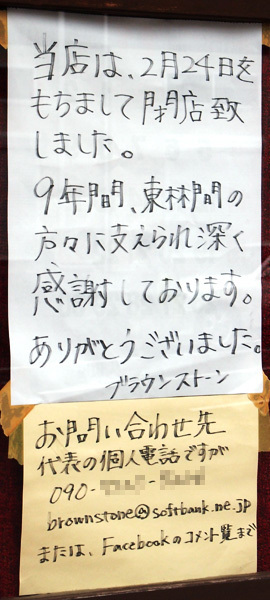 当店は、2月24日を
もちまして閉店致
しました。
9年間、東林間の
方々に支えられ深く
感謝しております。
ありがとうございました。
ブラウンストーン
お問い合わせ先
代表の個人電話ですが
090-
brownstone@softbank.ne.jp
または、Facebookのコメント覧まで